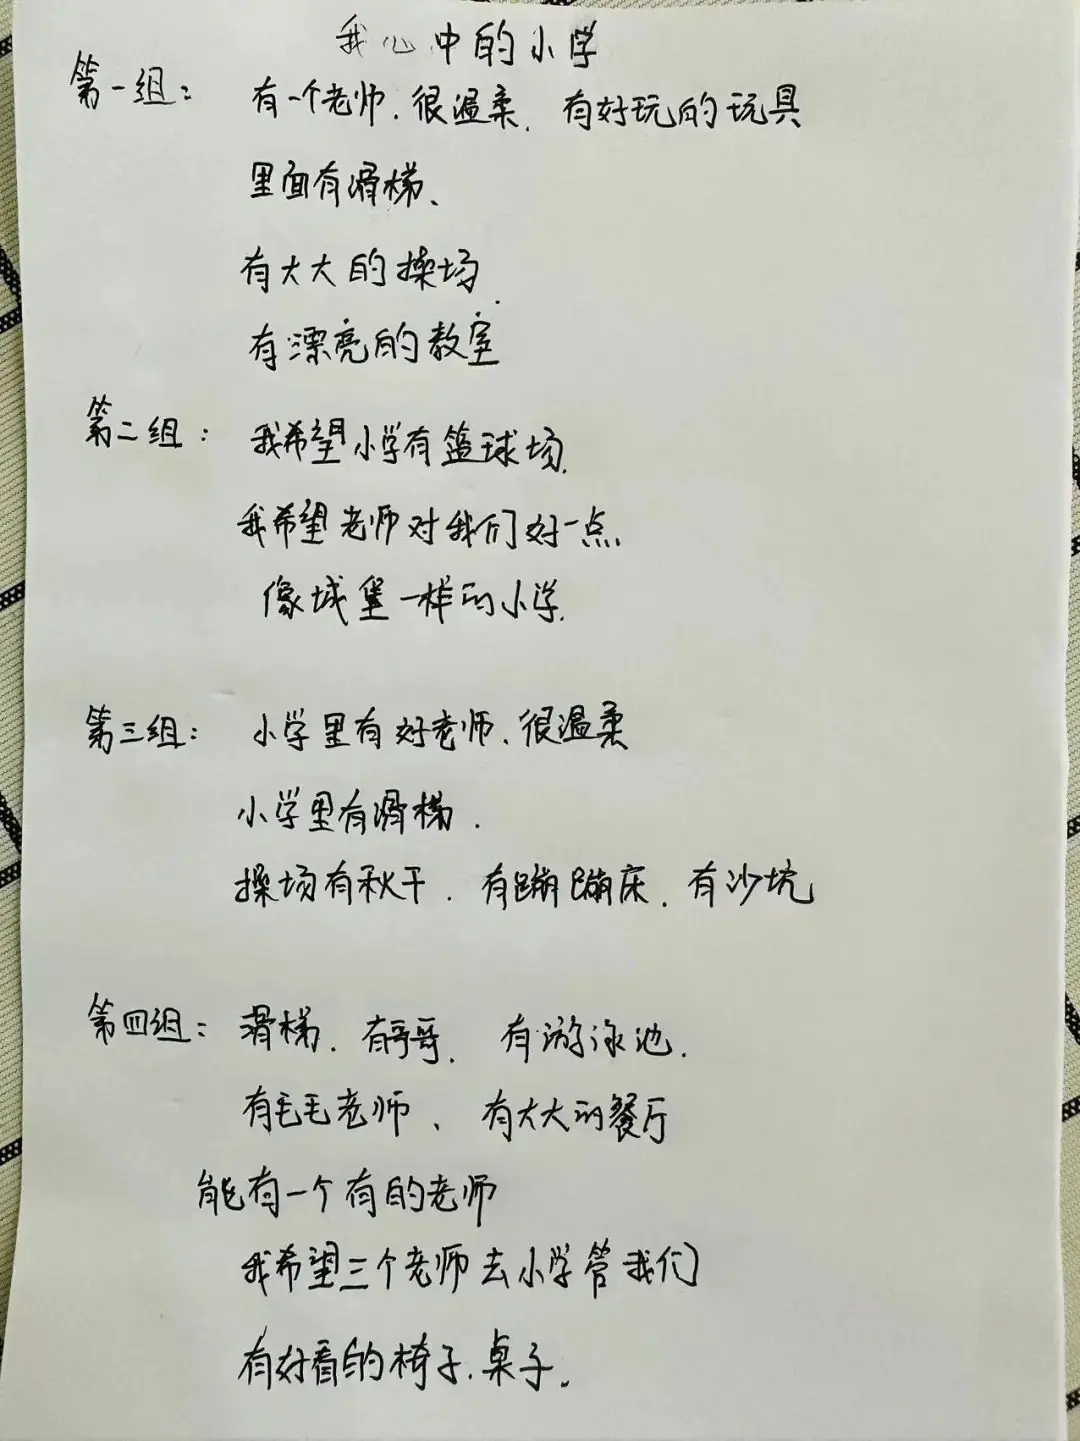 我心中的小学
第一组： 有一个老师、很温柔、有好玩的玩具
里面有滑梯、
有大大的操场、
有漂亮的教室
第二组： 我希望小学有篮球场、
我希望老师对我们好一点、
像城堡一样的小学、
第三组： 小学里有好老师、很温柔
小学里有滑梯、
操场有秋千、有蹦蹦床、有沙坑
第四组： 滑梯、有哥哥、有游泳池、
有毛毛老师、有大大的餐厅
能有一个有的老师
我希望三个老师去小学管我们
有好看的椅子、桌子。